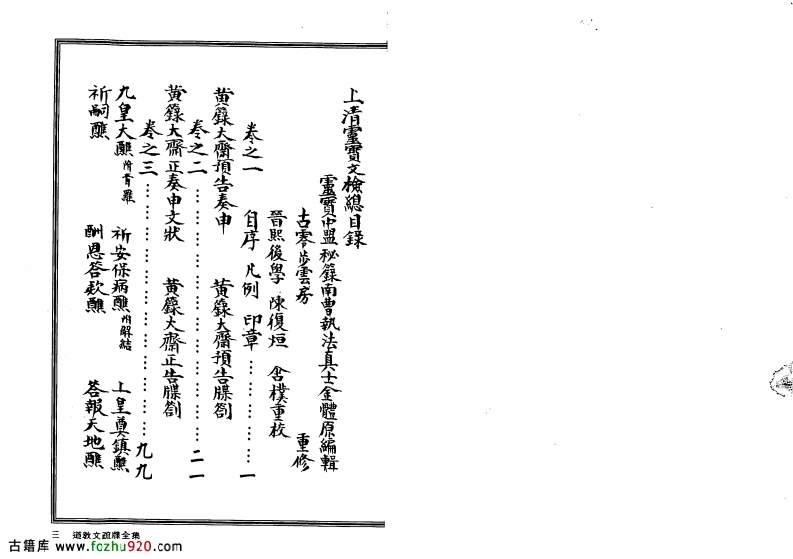 上清靈寶文檢總目錄
靈寶中盟秘籙南曹執法真士金體原編輯
古零步雲房 重修
晉熙後學 陳復烜 含樸重校
卷之一 自序 凡例 印章……………一
黃籙大齋預告奏申 黃籙大齋預告牒劄
卷之二……………二一
黃籙大齋正奏申文狀 黃籙大齋正告牒劄
卷之三……………九九
九皇大醮附青羅 祈安保病醮附解結 上皇尊鎮醮
祈嗣醮 酬恩答欵醮 答報天地醮
三 道教文疏牒全集
古籍库 www.fozhu920.com